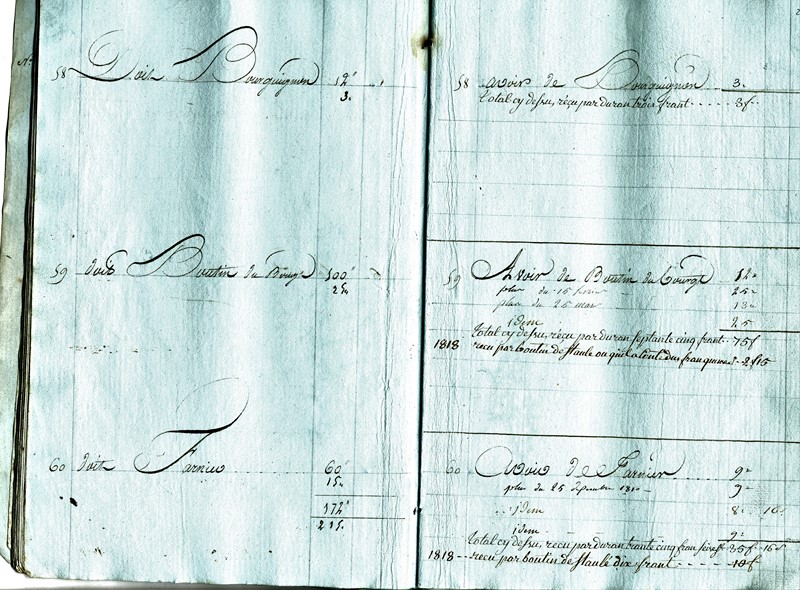 58 Doit Bourguignon 12
3.
59 doit Boutin du Bourg 100
25.
60 doit Farnier 60
15.
172
215.
58 avoir de Bourguignon 3.
total cy dessu, reçu par duran trois frant 3f
59 Avoir de Boutin du bourg 12
plus du 15
plus du 25 mar
idem 25
total cy dessu, reçu par duran septante cinq frant 75f
1818 reçu par boutin de staule 2f15
60 Avoir de Farnier 9
plus du 25 9
idem 8. 10
idem 9.
total cy dessu, reçu par duran trante cinq fran 35f
1818 reçu par boutin de staule dix frant 10f